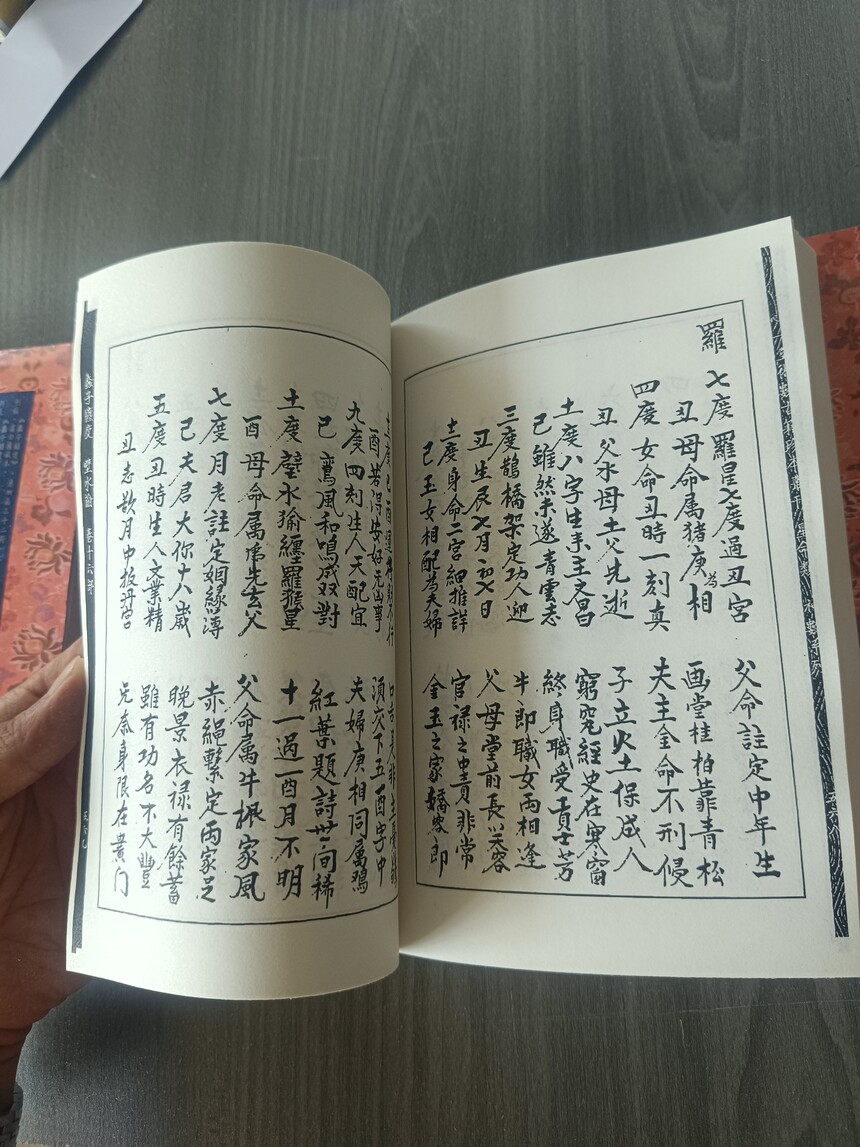 羅
七度羅星七度過丑宮 父命註定中年生
丑母命属猪庚若相 画堂桂柏靠青松
四度女命丑時一刻真 夫主金命不刑侵
丑父水母土父先逝 子立火土保成人
土度八字生来主文昌 窮究經史在寒窗
已雖然未遂青雲志 終身職受貢士芳
三度鵲橋架定功人迎 牛即職女両相逢
丑生辰七月初七日 父母堂前長笑容
土度身命二宮細推詳 官禄之中貴非常
已玉女相配為夫婦 金玉之家嬌客即
五六八
酉若得安好无凶事 須交下五酉字中
九度四刻生人天配宜 夫婦庚相同属鸡
已鸾風和鳴成双對 紅葉題詩世间稀
土度壁水貐纏羅猴星 十一過酉月不明
酉母命属虎先去父 父命属牛振家風
七度月老註定姻緣溥 赤縄繫定両家足
已夫君大你十八歲 晚景衣禄有餘蓄
五度丑時生人文業精 雖有功名不大豐
丑志欲月中扳丹宮 无奈身限在黄门
蠢子纏度 壁水貐 卷十六
五六九